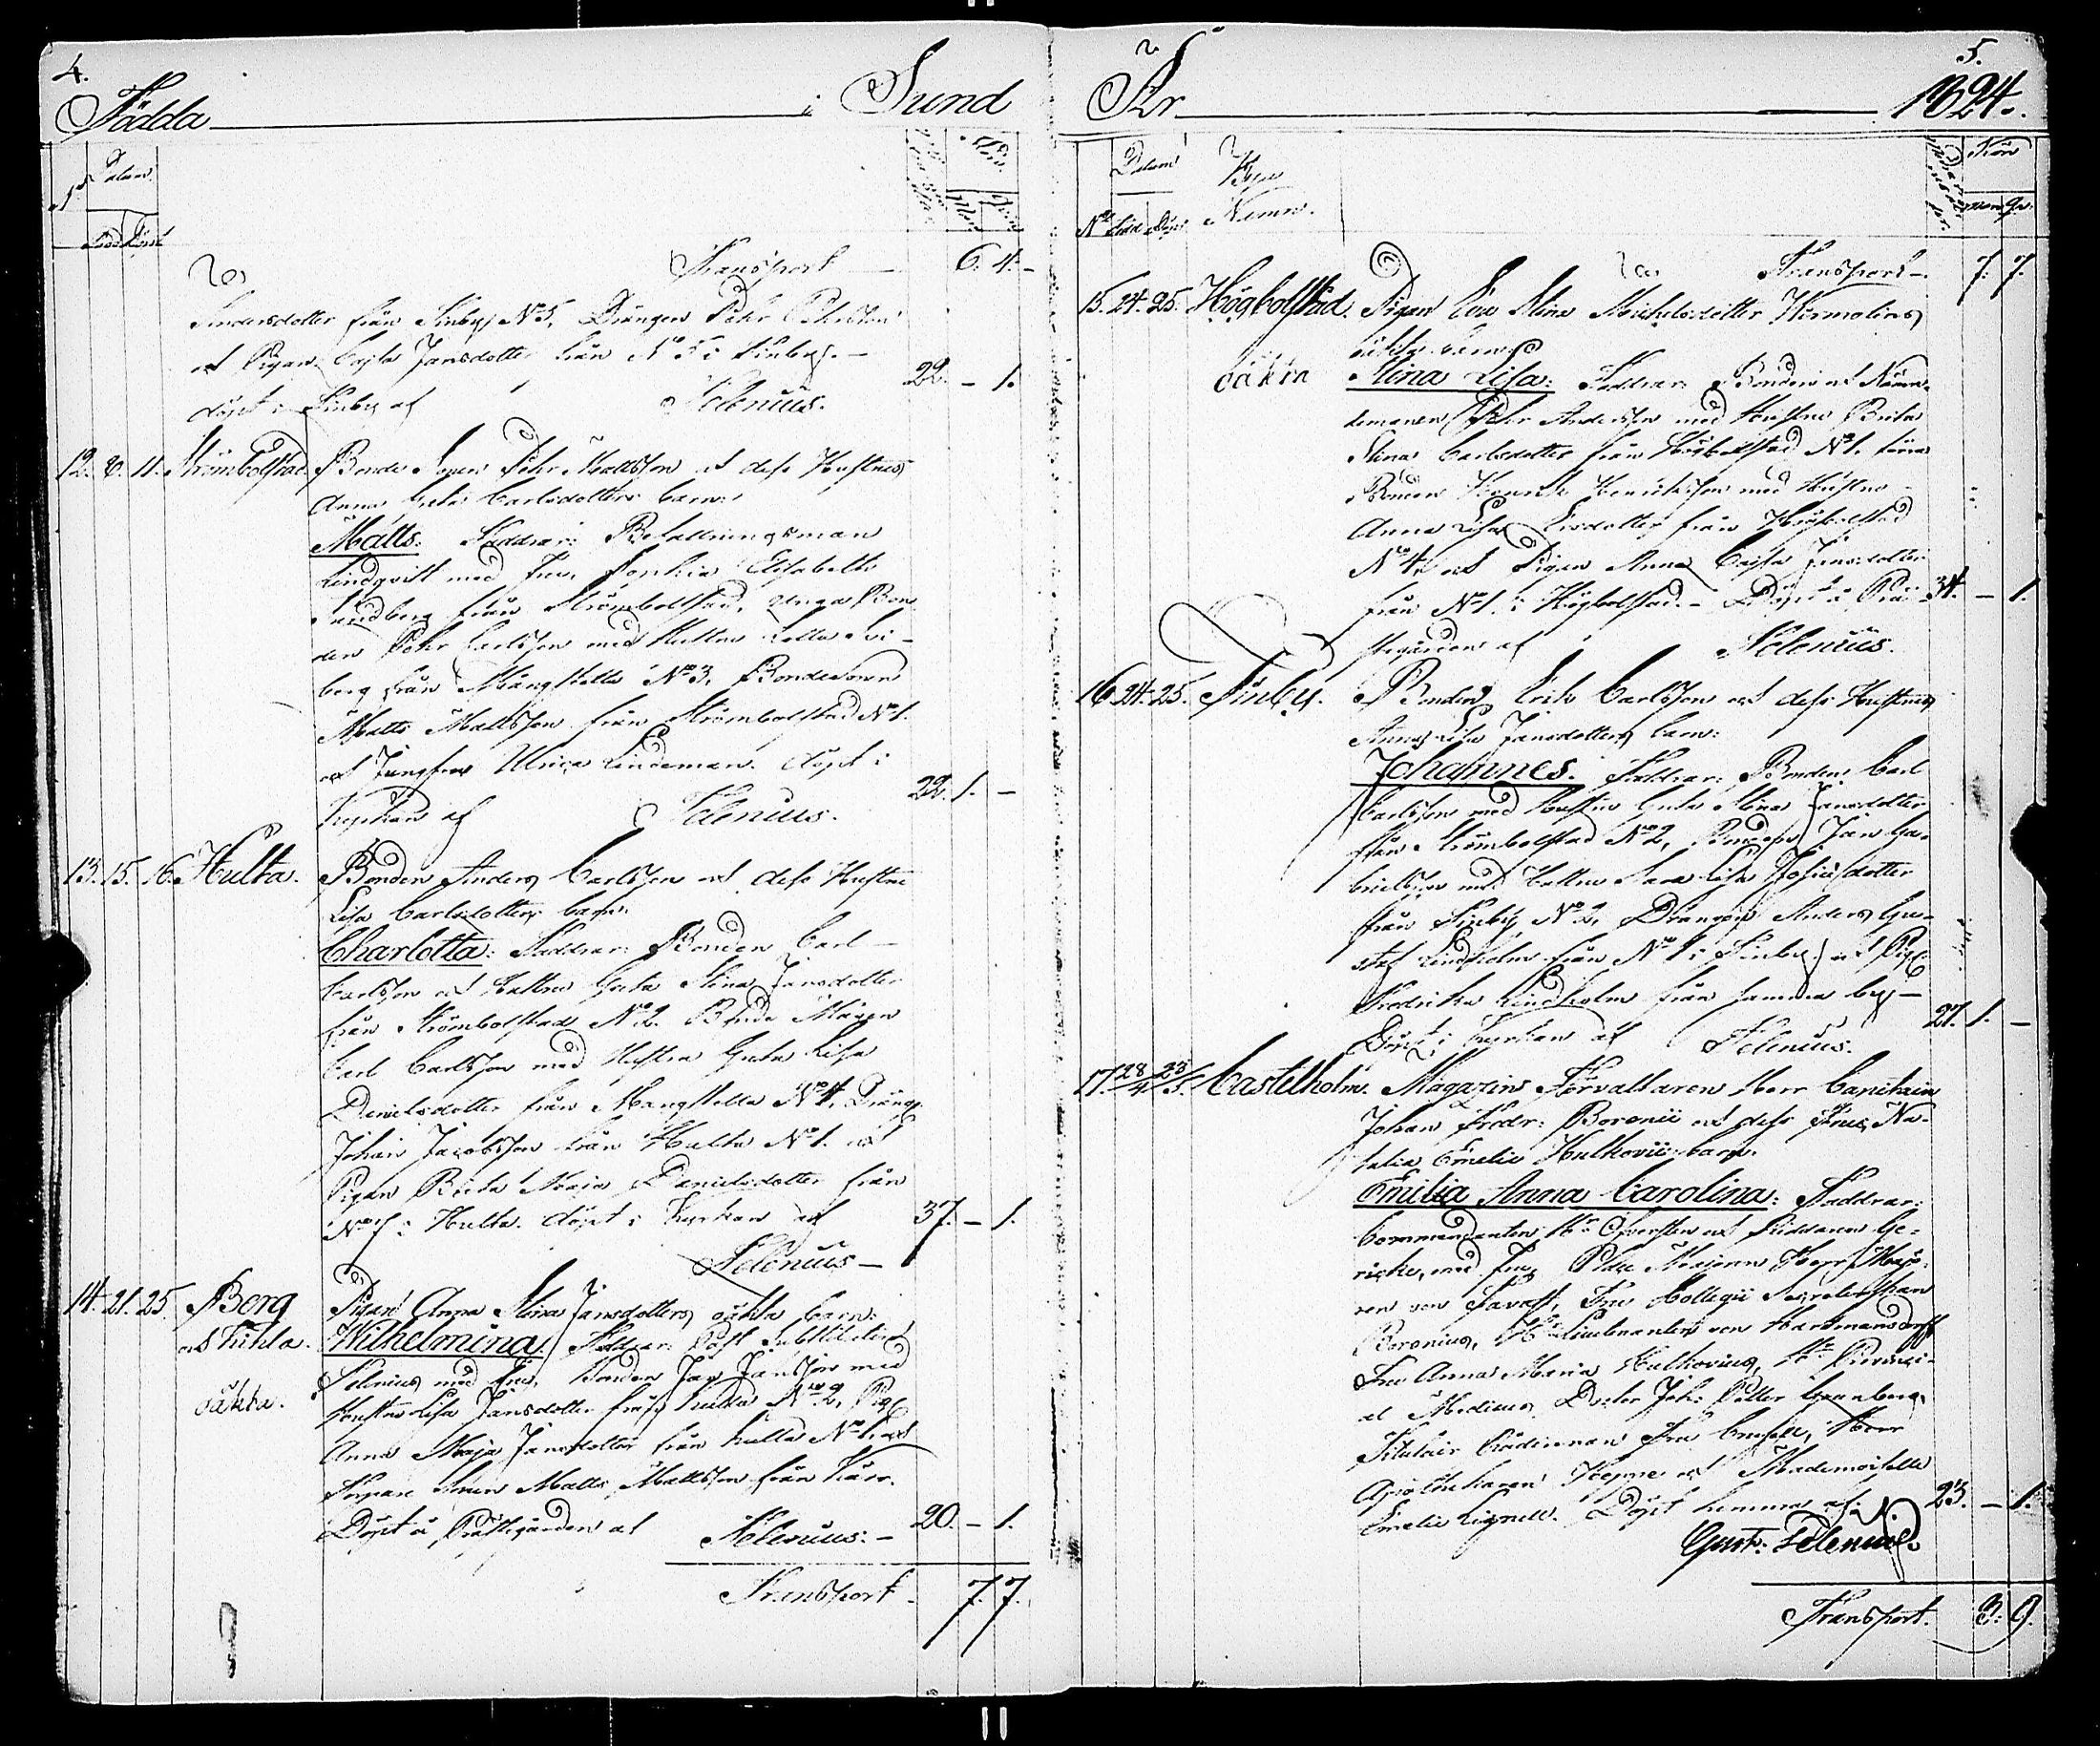 4.
Födda i Sund
No Datum Kön
född döpt
Transport 6. 4.
Andersdotter från Finby No 5, Drängen Pehr Pehrsson
och Pigan Cajsa Jansdotter från No 5 i Finby.
döpt i Finby af Selenius. 22. – 1.
12. 8. 11. Strömbolstad Bonde Sonen Pehr Mattsson och dess Hustrus
Anna Greta Carlsdotters barn:
Matts. Faddrar: Befallningsman
Lindqvist med Fru Sophia Elisabeth
Sundberg från Strömbolstad, Unga Bon-
den Pehr Carlsson med Hustru Lotta Sve-
berg från Mångstekta No 3, Bondesonen
Matts Mattsson från Strömbolstad No 1.
och Jungfru Ulrica Lindeman. döpt i
Kyrkan af Selenius. 22. 1. –
13. 15. 16. Hulta. Bonden Anders Carlsson och dess Hustru
Lisa Carlsdotters barn:
Charlotta: Faddrar: Bonden Carl
Carlsson och Hustru Greta Stina Jansdotter
från Strömbolstad No 2. Bonde Mågen
Carl Carlsson med Hustru Greta Lisa
Danielsdotter från Mångstekta No 4, Dräng:
Johan Jacobsson från Hulta No 1. och
Pigan Brita Maja Danielsdotter från
No 7 i Hulta. döpt i Kyrkan af 37. – 1.
Selenius –
14. 21. 25. Borg Pigan Anna Stina Jansdotters oäkta barn:
och Kulla. Wilhelmina. Faddrar: Past. Substituten
Selenius med Fru, Bonden Jan Jansson med
oäkta. Hustru Lisa Jansdotter från Kulla No 2, Pig:
Anna Maja Jansdotter från Kulla No 1. och
Torpare Sonen Matts Mattsson från Kärr.
Döpt å Prästegården af Selenius: – 20. – 1.
Transport 7. 7.
År 1824.
5.
Datum Byn Kön
No född döpt Namn. man. qv.
Transport. 7. 7.
15. 24. 25. Högbolstad. Pigan Eva Stina Michelsdotter Hermelins
oäkta barn
oäkta Stina Lisa: Faddrar: Bonden och Nämn-
demannen Pehr Andersson med Hustru Brita
Stina Carlsdotter från Högbolstad No 1, förra
Bonden Henrik Henriksson med Hustru
Anna Lisa Ersdotter från Högbolstad
No 4. och Pigan Anna Cajsa Jansdotter
från No 1. i Högbolstad. – Döpt å Prä- 34. – 1.
stegården af Selenius.
16. 24. 25. Finby. Bonden Erik Carlsson och dess Hustrus
Anna Lisa Jansdotters barn:
Johannes. Faddrar: Bonden Carl
Carlsson med Hustru Greta Stina Jansdotter
från Strömbolstad No 2, Bonden Jan Ga-
brielsson med Hustru Sara Lisa Josiasdotter
från Finby No 2, Drängen Anders Gu-
staf Lindholm från No 1 i Finby, och Pig:
Fredrika Lindholm från samma by –
Döpt i Kyrkan af Selenius. 27. 1. –
17. 28/4 23/5. Castelholm. Magazins Förvaltaren Herr Capitain
Johan Fredr: Borenii och dess Frus, Na-
talia Emelie Hulkovii barn.
Emilia Anna Carolina: Faddrar:
Commendanten Hr Öfversten och Riddaren Ge-
ricke, med Fru, Herr Majo-
ren von Tavast, Fru Collegii Secreterskan
Borenius, Hr Lieutnanten von Hartmansdorff
Fru Anna Maria Hulkovius, Hr Provinci-
al Medicus Doctor Joh: Petter Granberg,
Titulair Rådinnan Fru Crusell, Herr
Apothekaren Hoeppe och Mademoiselle
Emelie Lignell. Döpt hemma af 23. – 1.
Gust: Selenius.
Transport. 8. 9.